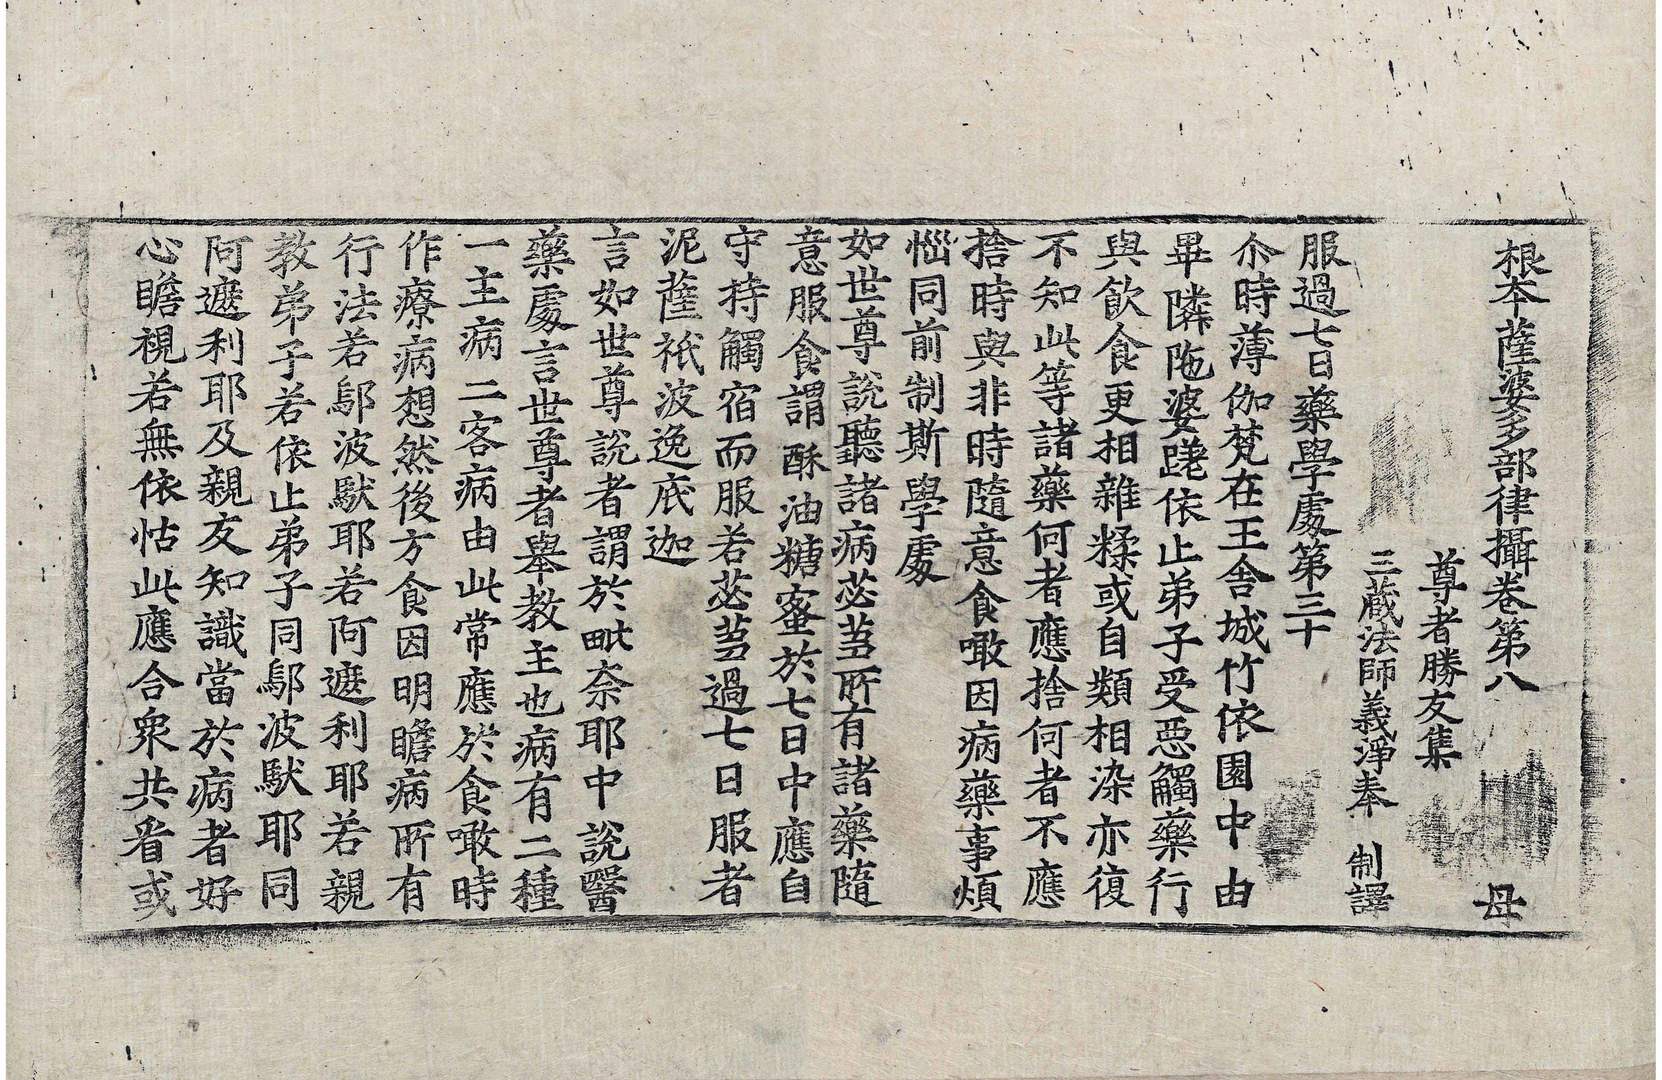 根本薩婆多部律攝卷第八 母
尊者勝友集
三藏法師義淨奉 制譯
服過七日藥學處第三十
尒時薄伽梵在王舍城竹依園中由
畢隣陁婆蹉依止弟子受惡觸藥行
與飲食更相雜糅或自類相染亦復
不知此等諸藥何者應捨何者不應
捨時與非時隨意食噉因病藥事煩
惱同前制斯學處
如世尊說聽諸病苾芻所有諸藥隨
意服食謂酥油糖蜜於七日中應自
守持觸宿而服若苾芻過七日服者
泥薩祇波逸底迦
言如世尊說者謂於毗奈耶中說醫
藥處言世尊者舉教主也病有二種
一主病二客病由此常應於食噉時
作療病想然後方食因明瞻病所有
行法若鄔波馱耶若阿遮利耶若親
教弟子若依止弟子同鄔波馱耶同
阿遮利耶及親友知識當於病者好
心瞻視若無依怙此應合衆共看或